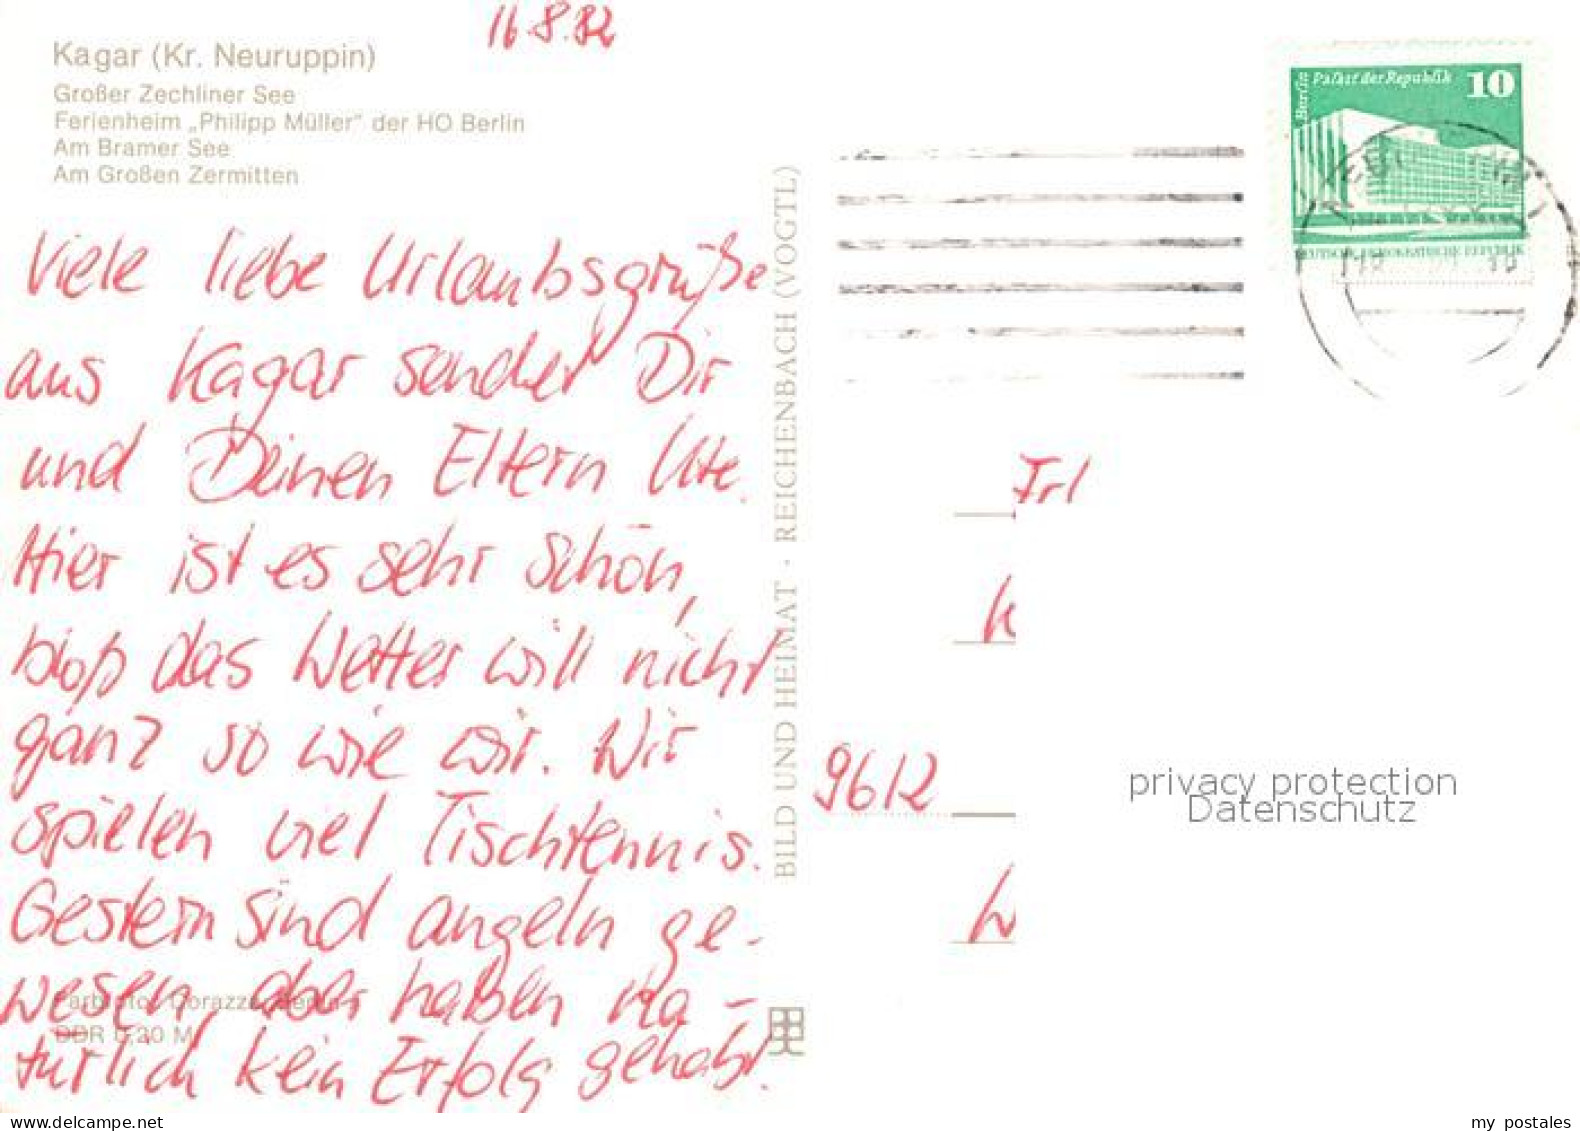 16.8.82
Kagar (Kr. Neuruppin)
Großer Zechliner See
Ferienheim „Philipp Müller“ der HO Berlin
Am Bramer See
Am Großen Zermitten
Viele liebe Urlaubsgrüße
aus Kagar sendet Dir
und Deinen Eltern Ute.
Hier ist es sehr schön,
bloß das Wetter will nicht
ganz so wie wir. Wir
spielen viel Tischtennis.
Gestern sind angeln ge-
wesen, aber haben na-
türlich kein Erfolg gehabt.
Farbfoto: Dorazza, Berlin
DDR 0,20 M
BILD UND HEIMAT · REICHENBACH (VOGTL)
Berlin Palast der Republik 10
DEUTSCHE DEMOKRATISCHE REPUBLIK
Frl
9612
privacy protection
Datenschutz
my postales
delcampe.net